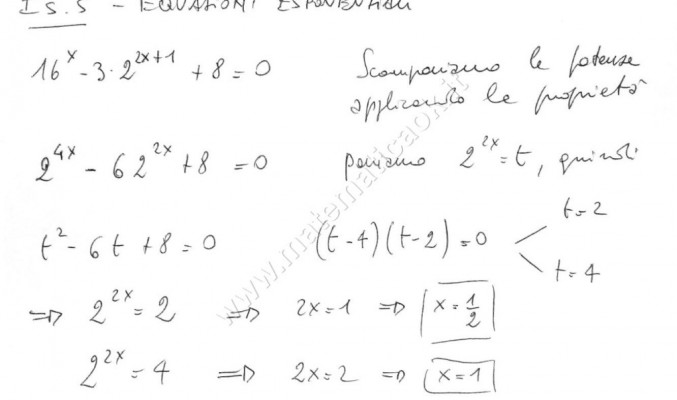 I S. S - EQUAZIONI ESPONENZIALI
16^x - 3 · 2^{2x+1} + 8 = 0 Scomponiamo le potenze
applicando le proprietà
2^{4x} - 6 2^{2x} + 8 = 0 poniamo 2^{2x} = t, quindi
t^2 - 6t + 8 = 0 (t-4)(t-2) = 0
t=2
t=4
⇒ 2^{2x} = 2 ⇒ 2x = 1 ⇒ x = 1/2
2^{2x} = 4 ⇒ 2x = 2 ⇒ x = 1
www.matematicaoi.it